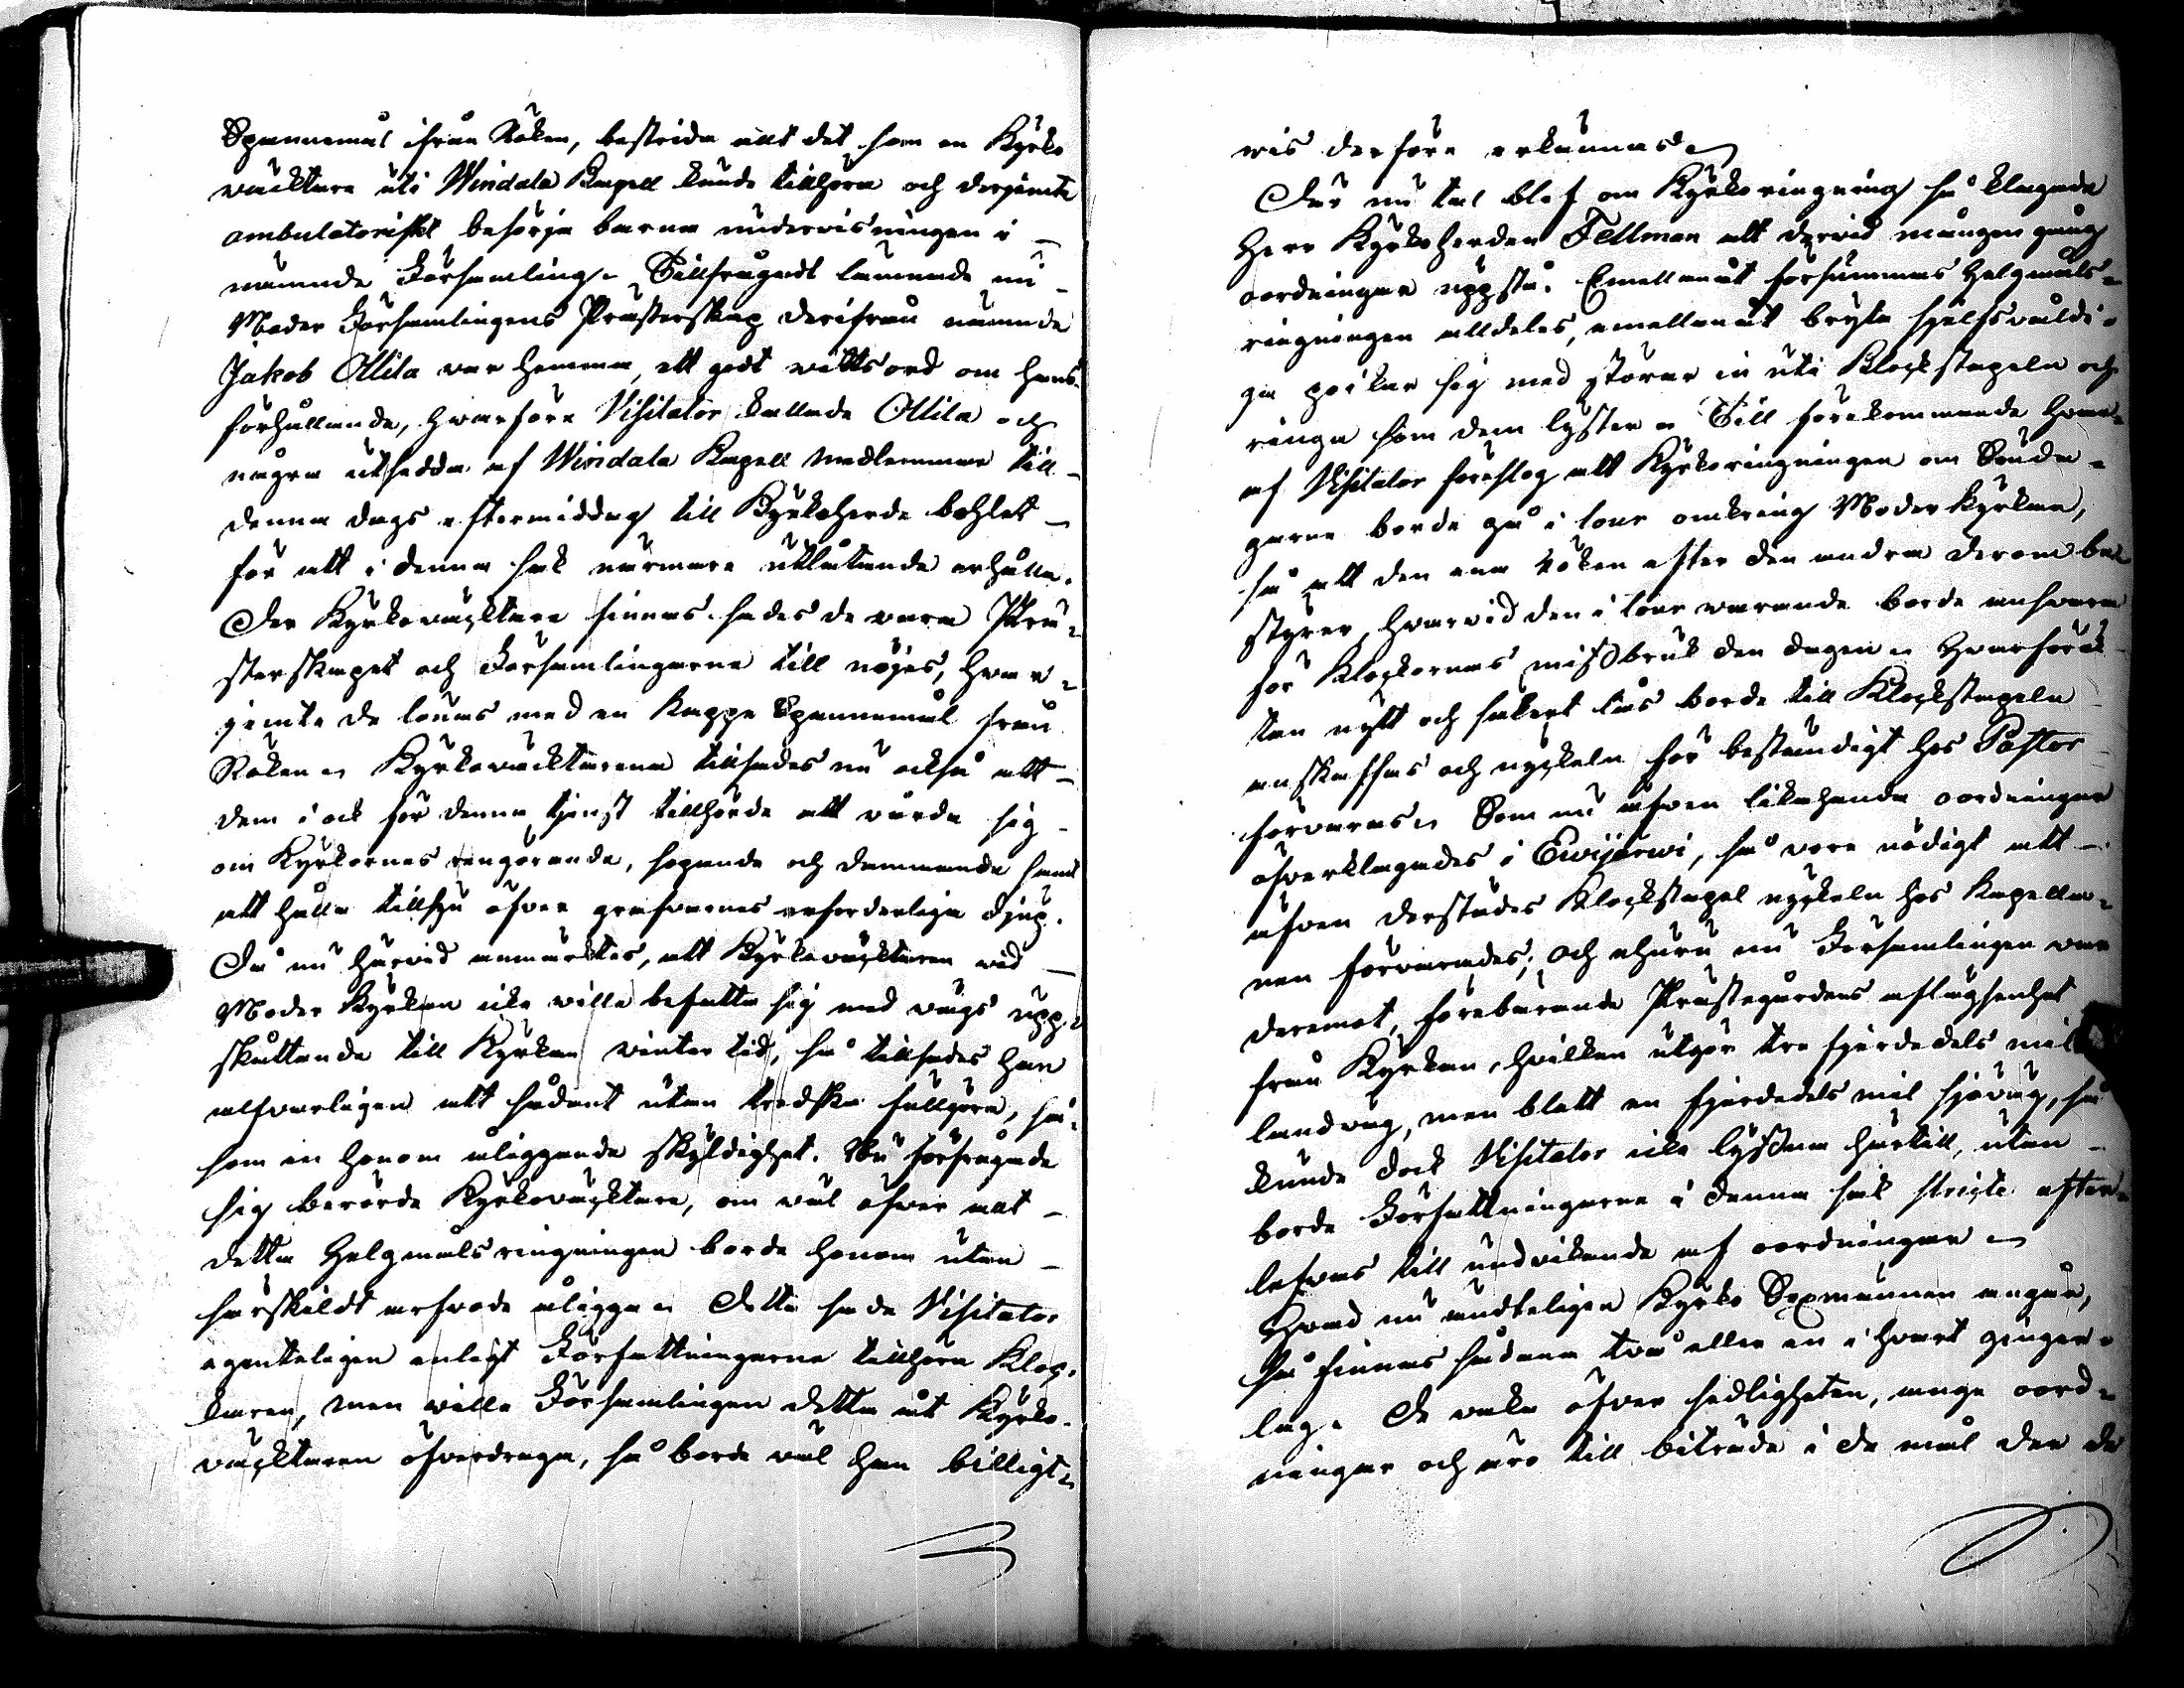 Spannemål ifrån Röken, bestrida allt det som en Kyrko
wäcktare uti Windala Kapell kunde tillhöra och derjemte
ambulatoriskt besörja barna undervisningen i
nämnde Församling. Tillfrågadt lämnade nu
Moder Församlingens Presterskap derifrån nämnde
Jakob Ollila var hemma, ett godt wittsord om hans
förhållande, hwarföre Visitator kallade Ollila och
några utsedda af Windala Kapell medlemmar till
denna dags eftermiddag till Kyrkoherde bohlet
för att i denna sak närmare utlåtande erhålla.
De Kyrkowäcktare finnas sades de vara Pre-
sterskapet och Församlingarne till nöjes, hwar-
jemte de lönas med en Kappe Spannemål från
Röken. Kyrkowäcktarena tillsades nu också att
dem i och för denna tjenst tillhörde att vårda sig
om Kyrkornas rengörande, sopande och dammande samt
att hålla tillsyn öfver grafvarnes erforderliga djup.
Då nu härvid anmärktes, att Kyrkowäcktaren wid
Moder Kyrkan icke wille befatta sig med wägs upp-
skottande till Kyrkan vinter tid, så tillsades han
alfvarligen att sådant utan tredska fullgöra, så-
som en honom åliggande skyldighet. Nu förfrågade
sig berörde Kyrkowäcktare, om wäl öfver allt
detta Helgmålsringningen borde honom utan
särskildt arfvode åligga. Detta sade Visitator
egenteligen enligt Författningarne tillhöra Kloc-
karen, men wille Församlingen detta åt Kyrko-
wäcktaren öfverdraga, så borde wäl han billigt-
vis derföre erkännas.
Där nu tal blef om Kyrkoringning så klagade
Herr Kyrkoherden Fellman att derwid mången gång
oordningar uppstå. Emellanåt försummas Helgmåls-
ringningen alldeles, emellanåt bryta sjelfswåldi-
ga poikar sig med störar in uti Klockstapeln och
ringa som dem lyster. Till förekommande hwar-
af Visitator föreslog att Kyrkoringningen om Sönda-
garne borde gå i tour omkring Moder kyrkan,
så att den ena röken efter den andra derom be-
styrer, hwarwid den i tour warande borde answara
för Klockornas missbruk den dagen. Hwarföru-
tan nytt och säkert lås borde till Klockstapeln
anskaffas och nyckeln för beständigt hos Pastor
förwaras. Som nu äfven likahanda oordningar
öfverklagades i Ewijärwi, så vore nödigt att
äfven derstädes Klockstapel nyckeln hos Kapella-
nen förwarades; och ehuru nu Församlingen war
deremot, förebärande Prästegårdens aflägsenhet
från Kyrkan, hvilken utgör tre fjerdedels mil
landväg, men blott en fjerdedels mil sjöväg, så
kunde dock Visitator icke lyssna härtill, utan
borde Författningarne i denna sak stricte efter-
lefvas till undvikande af oordningar.
Hwad nu ändteligen Kyrko Sexmännen angår,
så finnas sådana två eller en i hwart gingär-
lag. De waka öfver sedligheten, ange oord-
ningar och äro till biträde i de mål der de